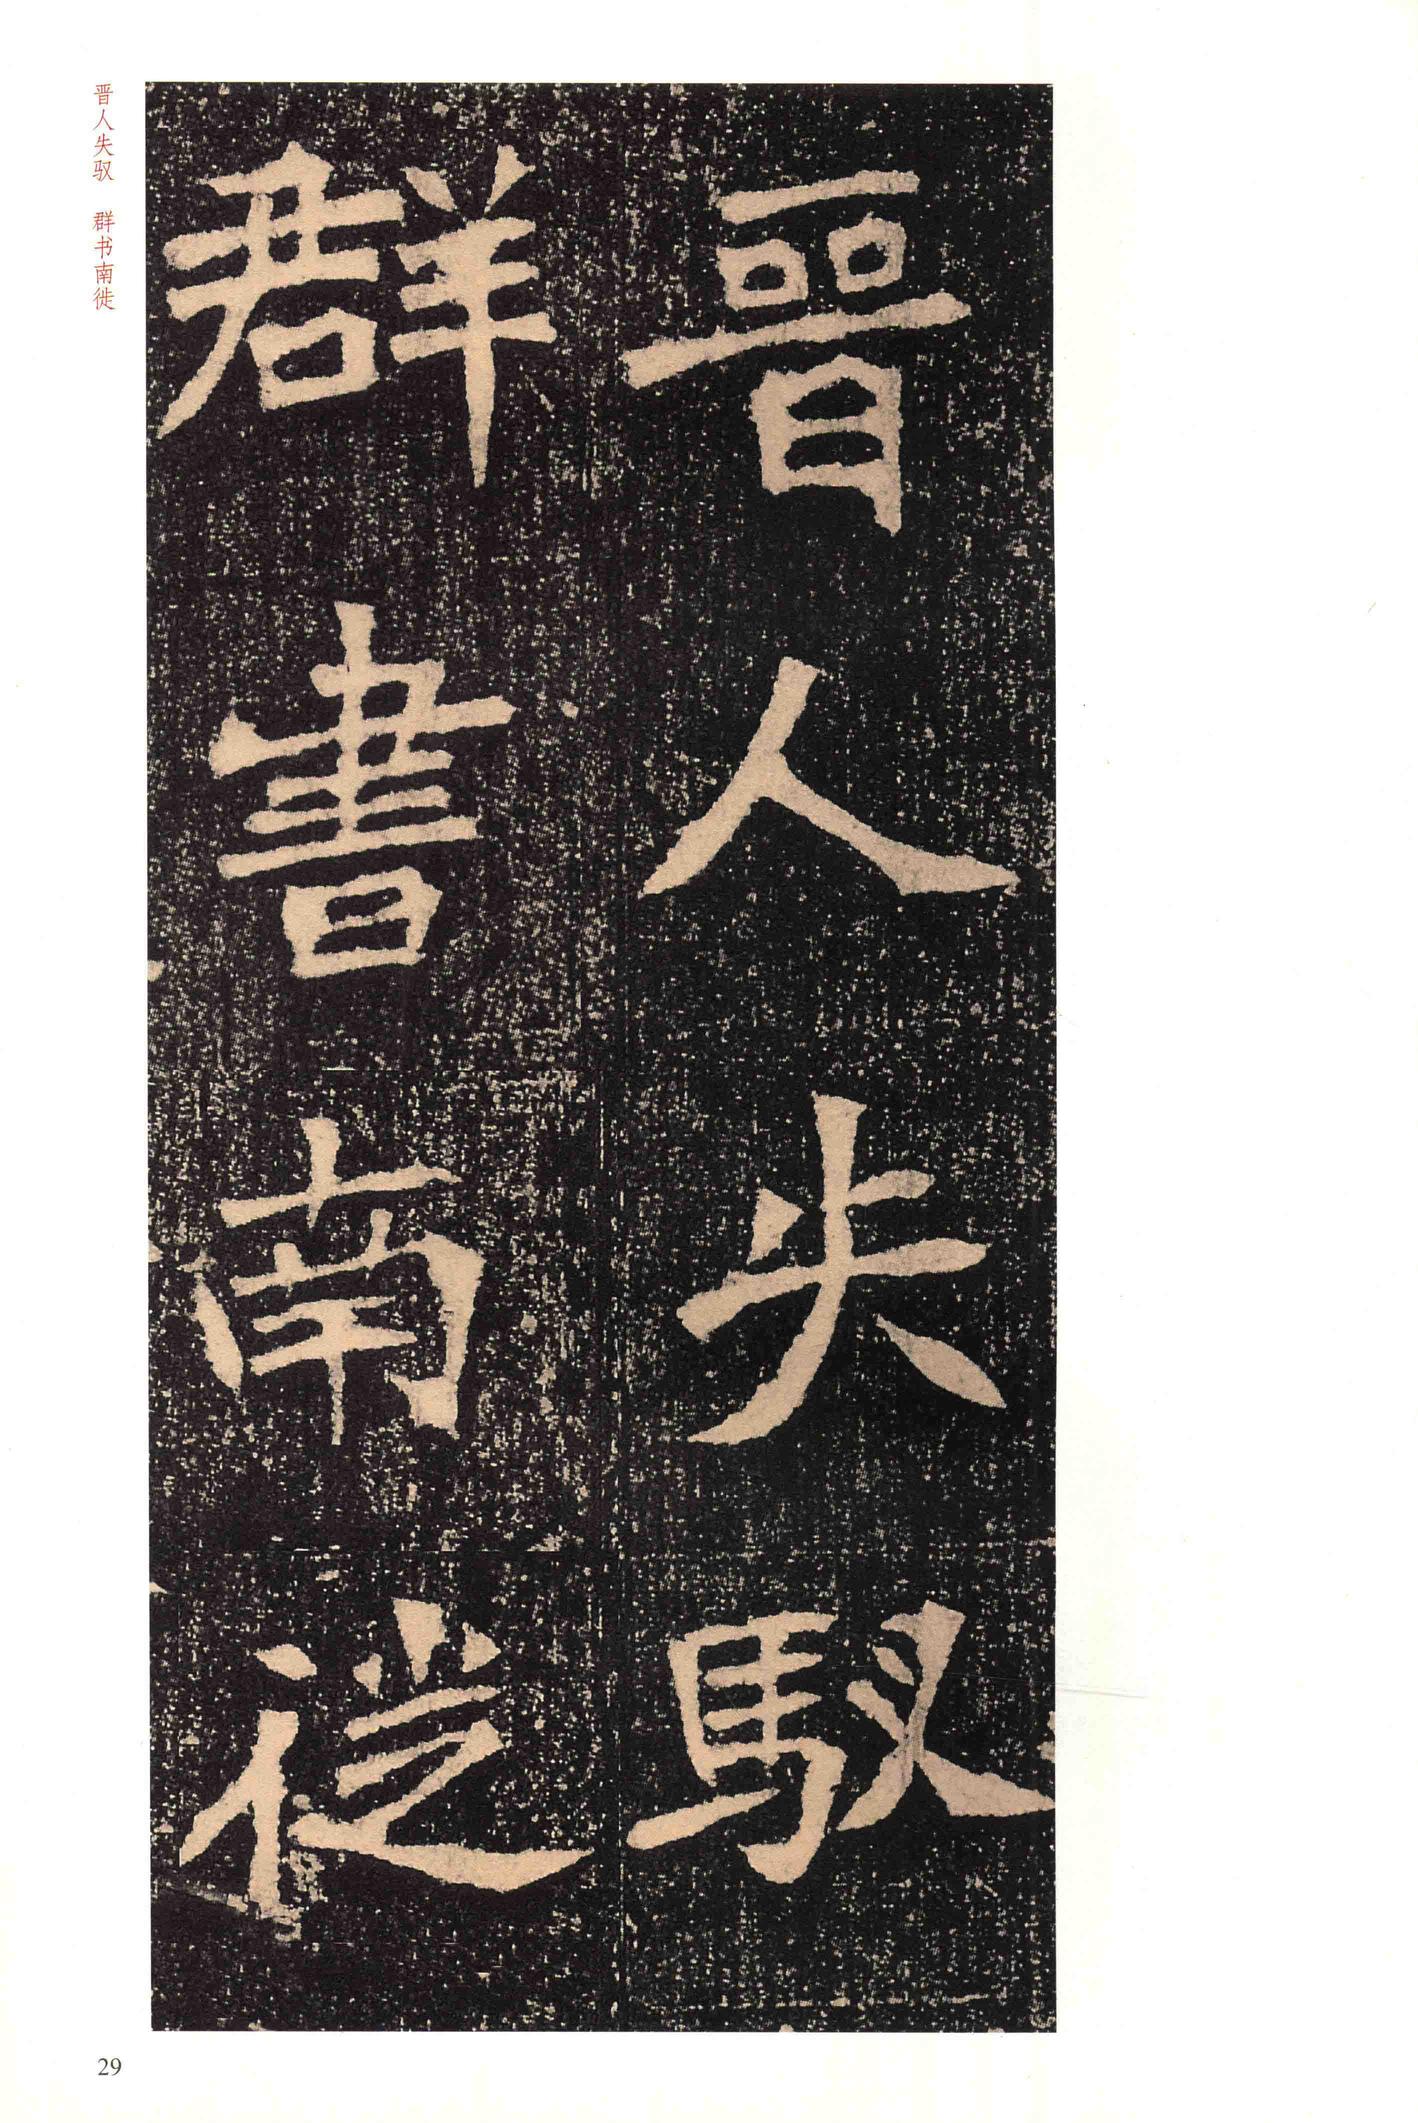 晋人失馭
群書南徙
晋人失驭 群书南徙
29